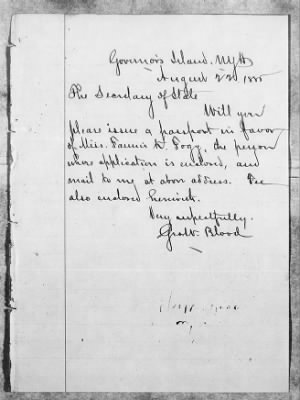 Governor's Island, N.Y.H.
August 22
The Secretary of State
Will you
please issue a passport in favor
of Miss. Fannie A. the person
whose application is enclosed, and
mail to me at above address. Fee
also enclosed herewith.
Very respectfully.
Blood